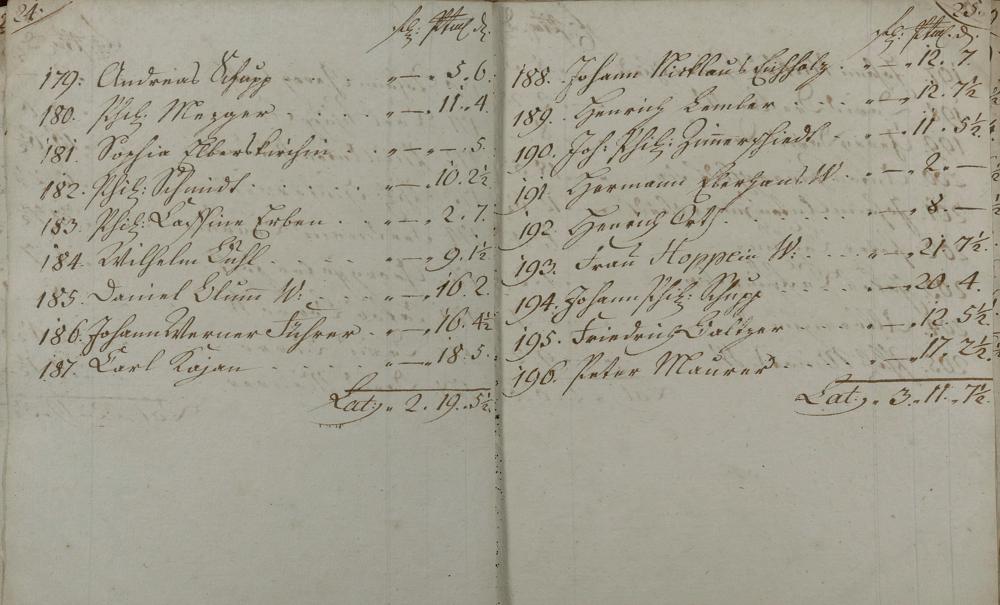 24.
179. Andreas Schupp " — " 5. 6.
180. Phil: Mezger . . . . " — " 11. 4.
181. Sophia Elberskirchin " — " — . 5.
182. Phil: Schmidt . . . . " — " 10. 2½
183. Phil: Erben . " — " 2. 7.
184. Wilhelm Cuhl . . . . " — " 9. 1½
185. Daniel Blum̄ W: . . . . " — " 16. 2.
186. Johann Werner Führer . " — " 16. 4½
187. Carl Kajan . . . . " — " 18. 5.
Lat: " 2. 19. 5½
25.
188. Johann Nicklaus Eichholz . " — " 12. 7.
189. Henrich Bember . . . . " — " 12. 7½
190. Joh: Phil: Zim̄erschiedt . " — " 11. 5½
191. Hermann Eberhards W. " — " 2. —
192. Henrich Orth . . . . " — " 8. —
193. Frau Hoppein W: . . " — " 21. 7½
194. Johann Phil: Schupp . . . " — " 20. 4.
195. Friedrich Baltzer . . . " — " 12. 5½
196. Peter Maurer . . . . " — " 17. 2½
Lat: " 3. " 11. " 7½